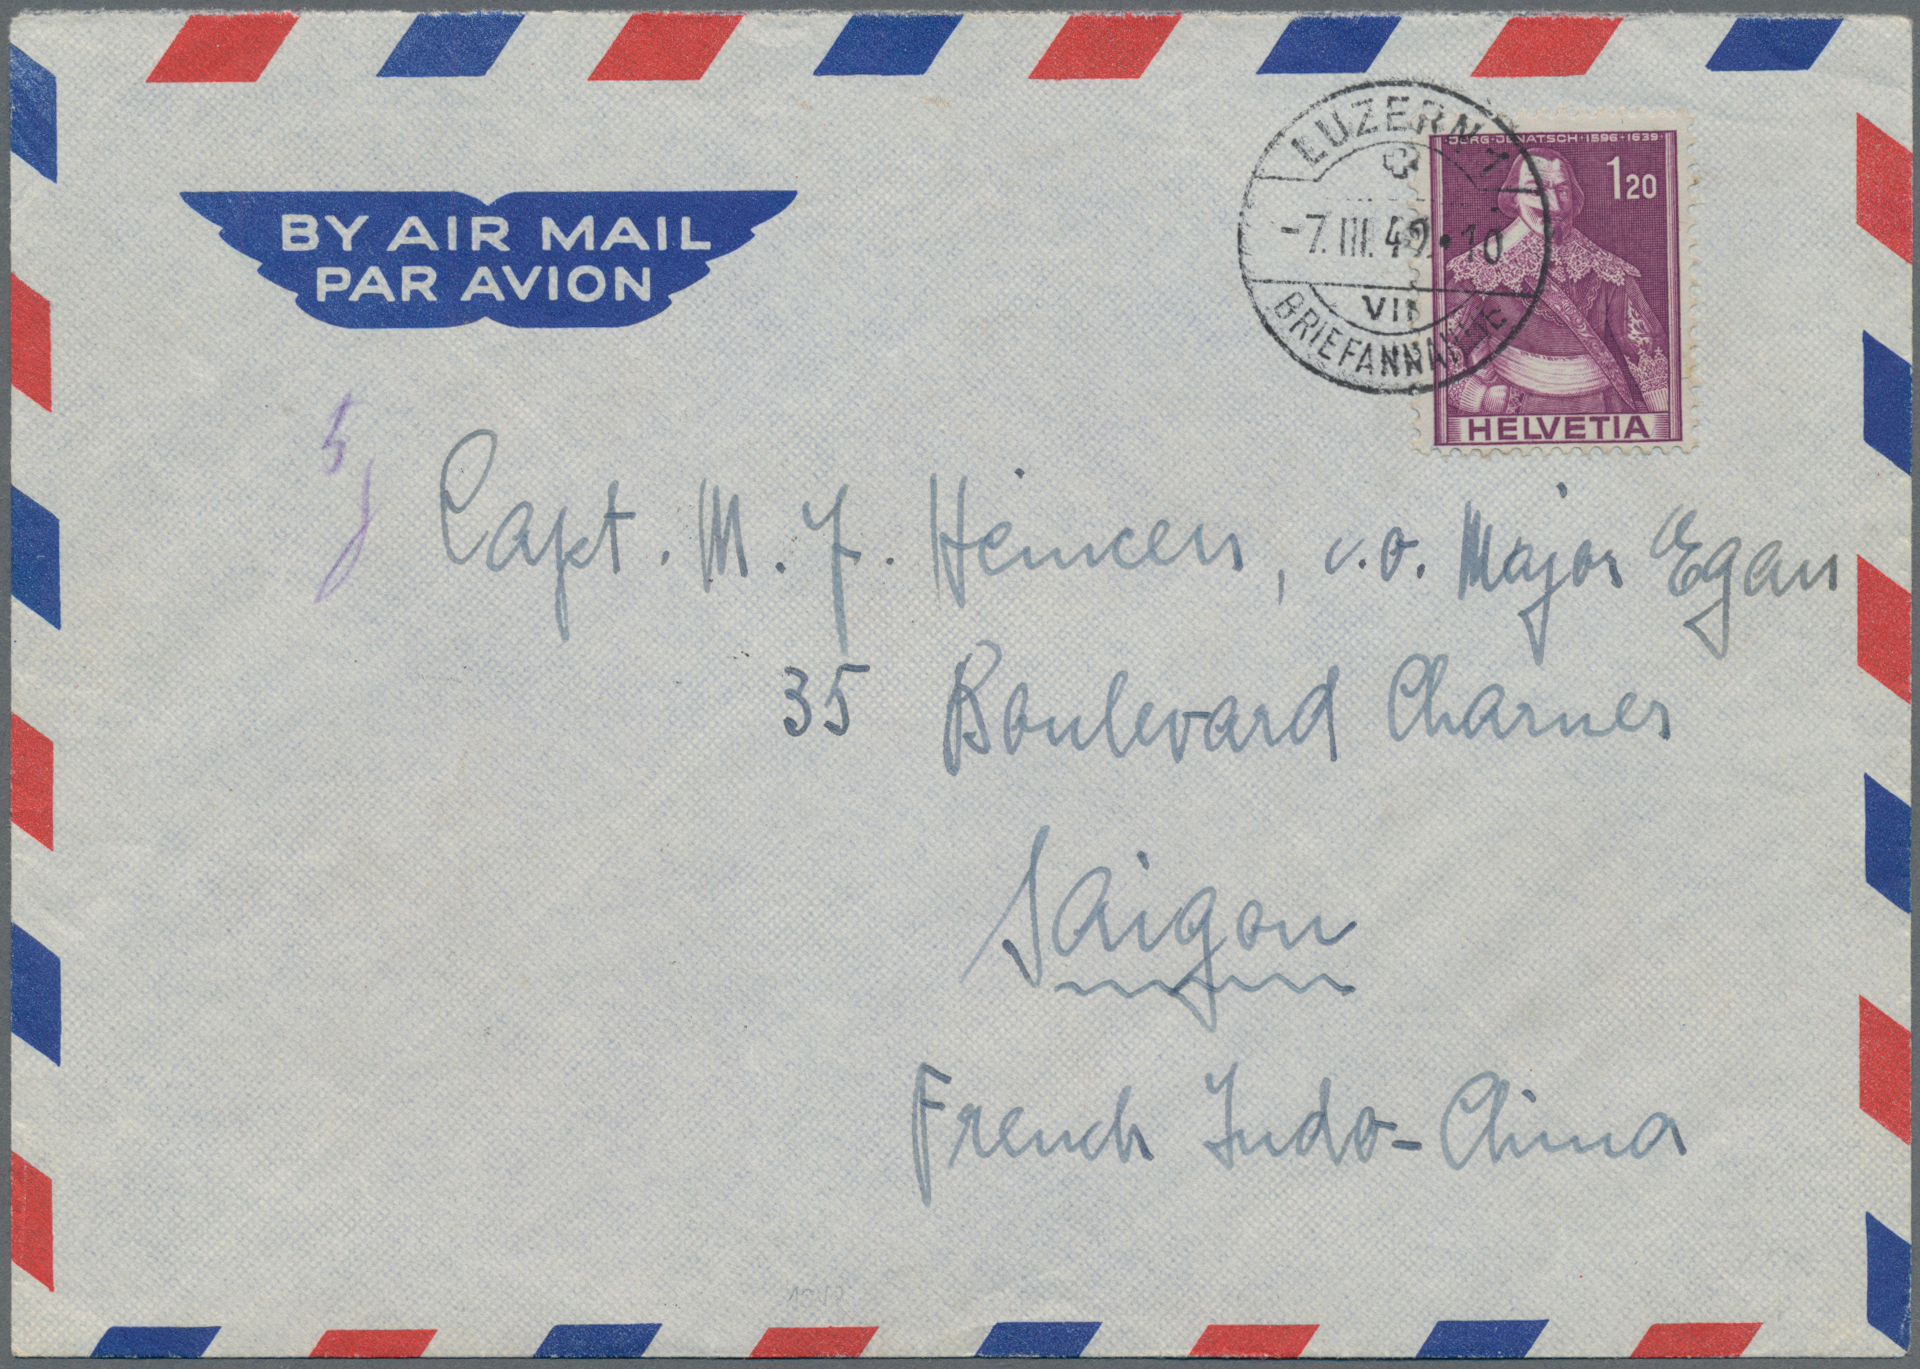 BY AIR MAIL
PAR AVION
LUZERN 1
-7.III.49.•10
VII
BRIEFANNAHME
JÖRG·JENATSCH·1596-1639
1 20
HELVETIA
Capt. M. J. Heincen, c.o. Major Egan
35 Boulevard Charner
Saigon
French Indo-China